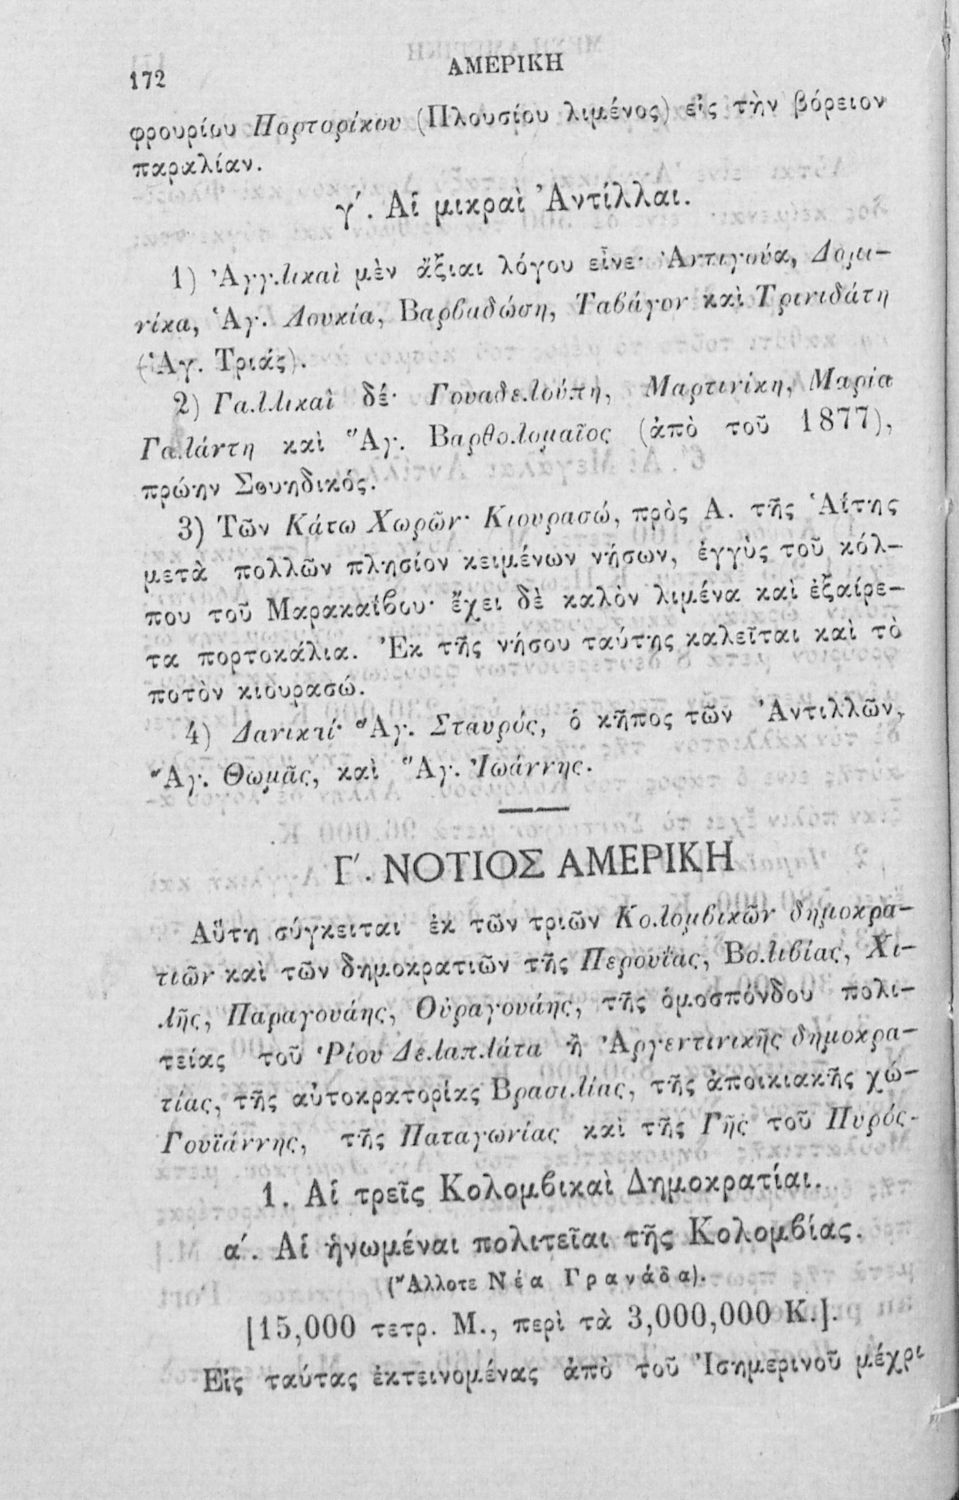 172
ΑΜΕΡΙΚΗ
φρουρίου Πορτορίκου (Πλουσίου λιμένος) εἰς τὴν βόρειον
παραλίαν.
γ΄. Αἱ μικραὶ Ἀντίλλαι.
1) Ἀγγλικαὶ μὲν ἄξιαι λόγου εἶνε· Ἀντιγούα, Δομι-
νίκα, Ἁγ. Λουκία, Βαρβαδώση, Ταβάγον καὶ Τρινιδάτη
(Ἁγ. Τριάς).
2) Γαλλικαὶ δέ· Γουαδελούπη, Μαρτινίκη, Μαρία
Γαλάντη καὶ Ἅγ. Βαρθολομαῖος (ἀπὸ τοῦ 1877),
πρώην Σουηδικός.
3) Τῶν Κάτω Χωρῶν· Κιουρασώ, πρὸς Α. τῆς Ἁΐτης
μετὰ πολλῶν πλησίον κειμένων νήσων, ἐγγὺς τοῦ κόλ-
που τοῦ Μαρακαΐβου· ἔχει δὲ καλὸν λιμένα καὶ ἐξαίρε-
τα πορτοκάλια. Ἐκ τῆς νήσου ταύτης καλεῖται καὶ τὸ
ποτὸν κιουρασώ.
4) Δανικαί· Ἅγ. Σταυρός, ὁ κῆπος τῶν Ἀντιλλῶν,
Ἅγ. Θωμᾶς, καὶ Ἅγ. Ἰωάννης.
Γ΄. ΝΟΤΙΟΣ ΑΜΕΡΙΚΗ
Αὕτη σύγκειται ἐκ τῶν τριῶν Κολομβικῶν δημοκρα-
τιῶν καὶ τῶν δημοκρατιῶν τῆς Περουΐας, Βολιβίας, Χι-
λῆς, Παραγουάης, Οὐραγουάης, τῆς ὁμοσπόνδου πολι-
τείας τοῦ Ῥίου Δελαπλάτα ἢ Ἀργεντινικῆς δημοκρα-
τίας, τῆς αὐτοκρατορίας Βρασιλίας, τῆς ἀποικιακῆς χώ-
Γουϊάννης, τῆς Παταγωνίας καὶ τῆς Γῆς τοῦ Πυρός.
1. Αἱ τρεῖς Κολομβικαὶ Δημοκρατίαι.
α΄. Αἱ ἡνωμέναι πολιτεῖαι τῆς Κολομβίας.
(Ἄλλοτε Νέα Γρανάδα).
[15,000 τετρ. Μ., περὶ τὰ 3,000,000 Κ.].
Εἰς ταύτας ἐκτεινομένας ἀπὸ τοῦ Ἰσημερινοῦ μέχρι